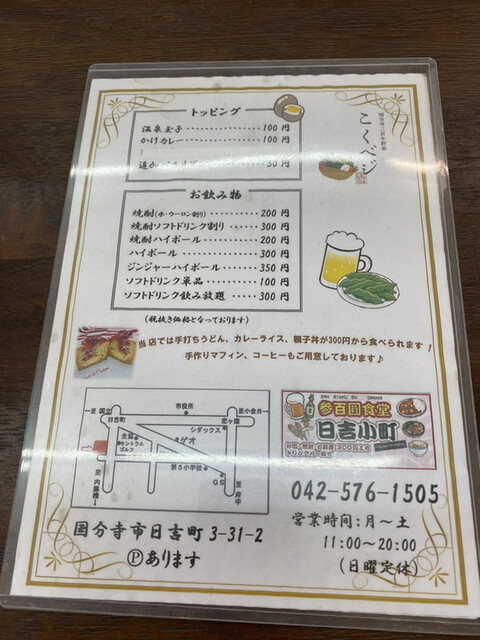 トッピング
温泉玉子 100円
かけカレー 100円
50円
国分寺三百年野菜
こくベジ
お飲み物
焼酎(水・ウーロン割り) 200円
焼酎ソフトドリンク割り 300円
焼酎ハイボール 200円
ハイボール 300円
ジンジャーハイボール 350円
ソフトドリンク単品 100円
ソフトドリンク飲み放題 300円
(税抜き価格となっております)
当店では手打ちうどん、カレーライス、親子丼が300円から食べられます！
手作りマフィン、コーヒーもご用意しております♪
至国立
日吉町
市役所
恋ヶ窪
至小金井
シダックス
生協
セントラル
ゴルフ
第5小学校
GS
至
内藤橋
至
府中
SAN BYAKU EN DINING
参百圓食堂
日吉小町
042-576-1505
国分寺市日吉町 3-31-2
Ⓟあります
営業時間:月〜土
11:00〜20:00
(日曜定休)